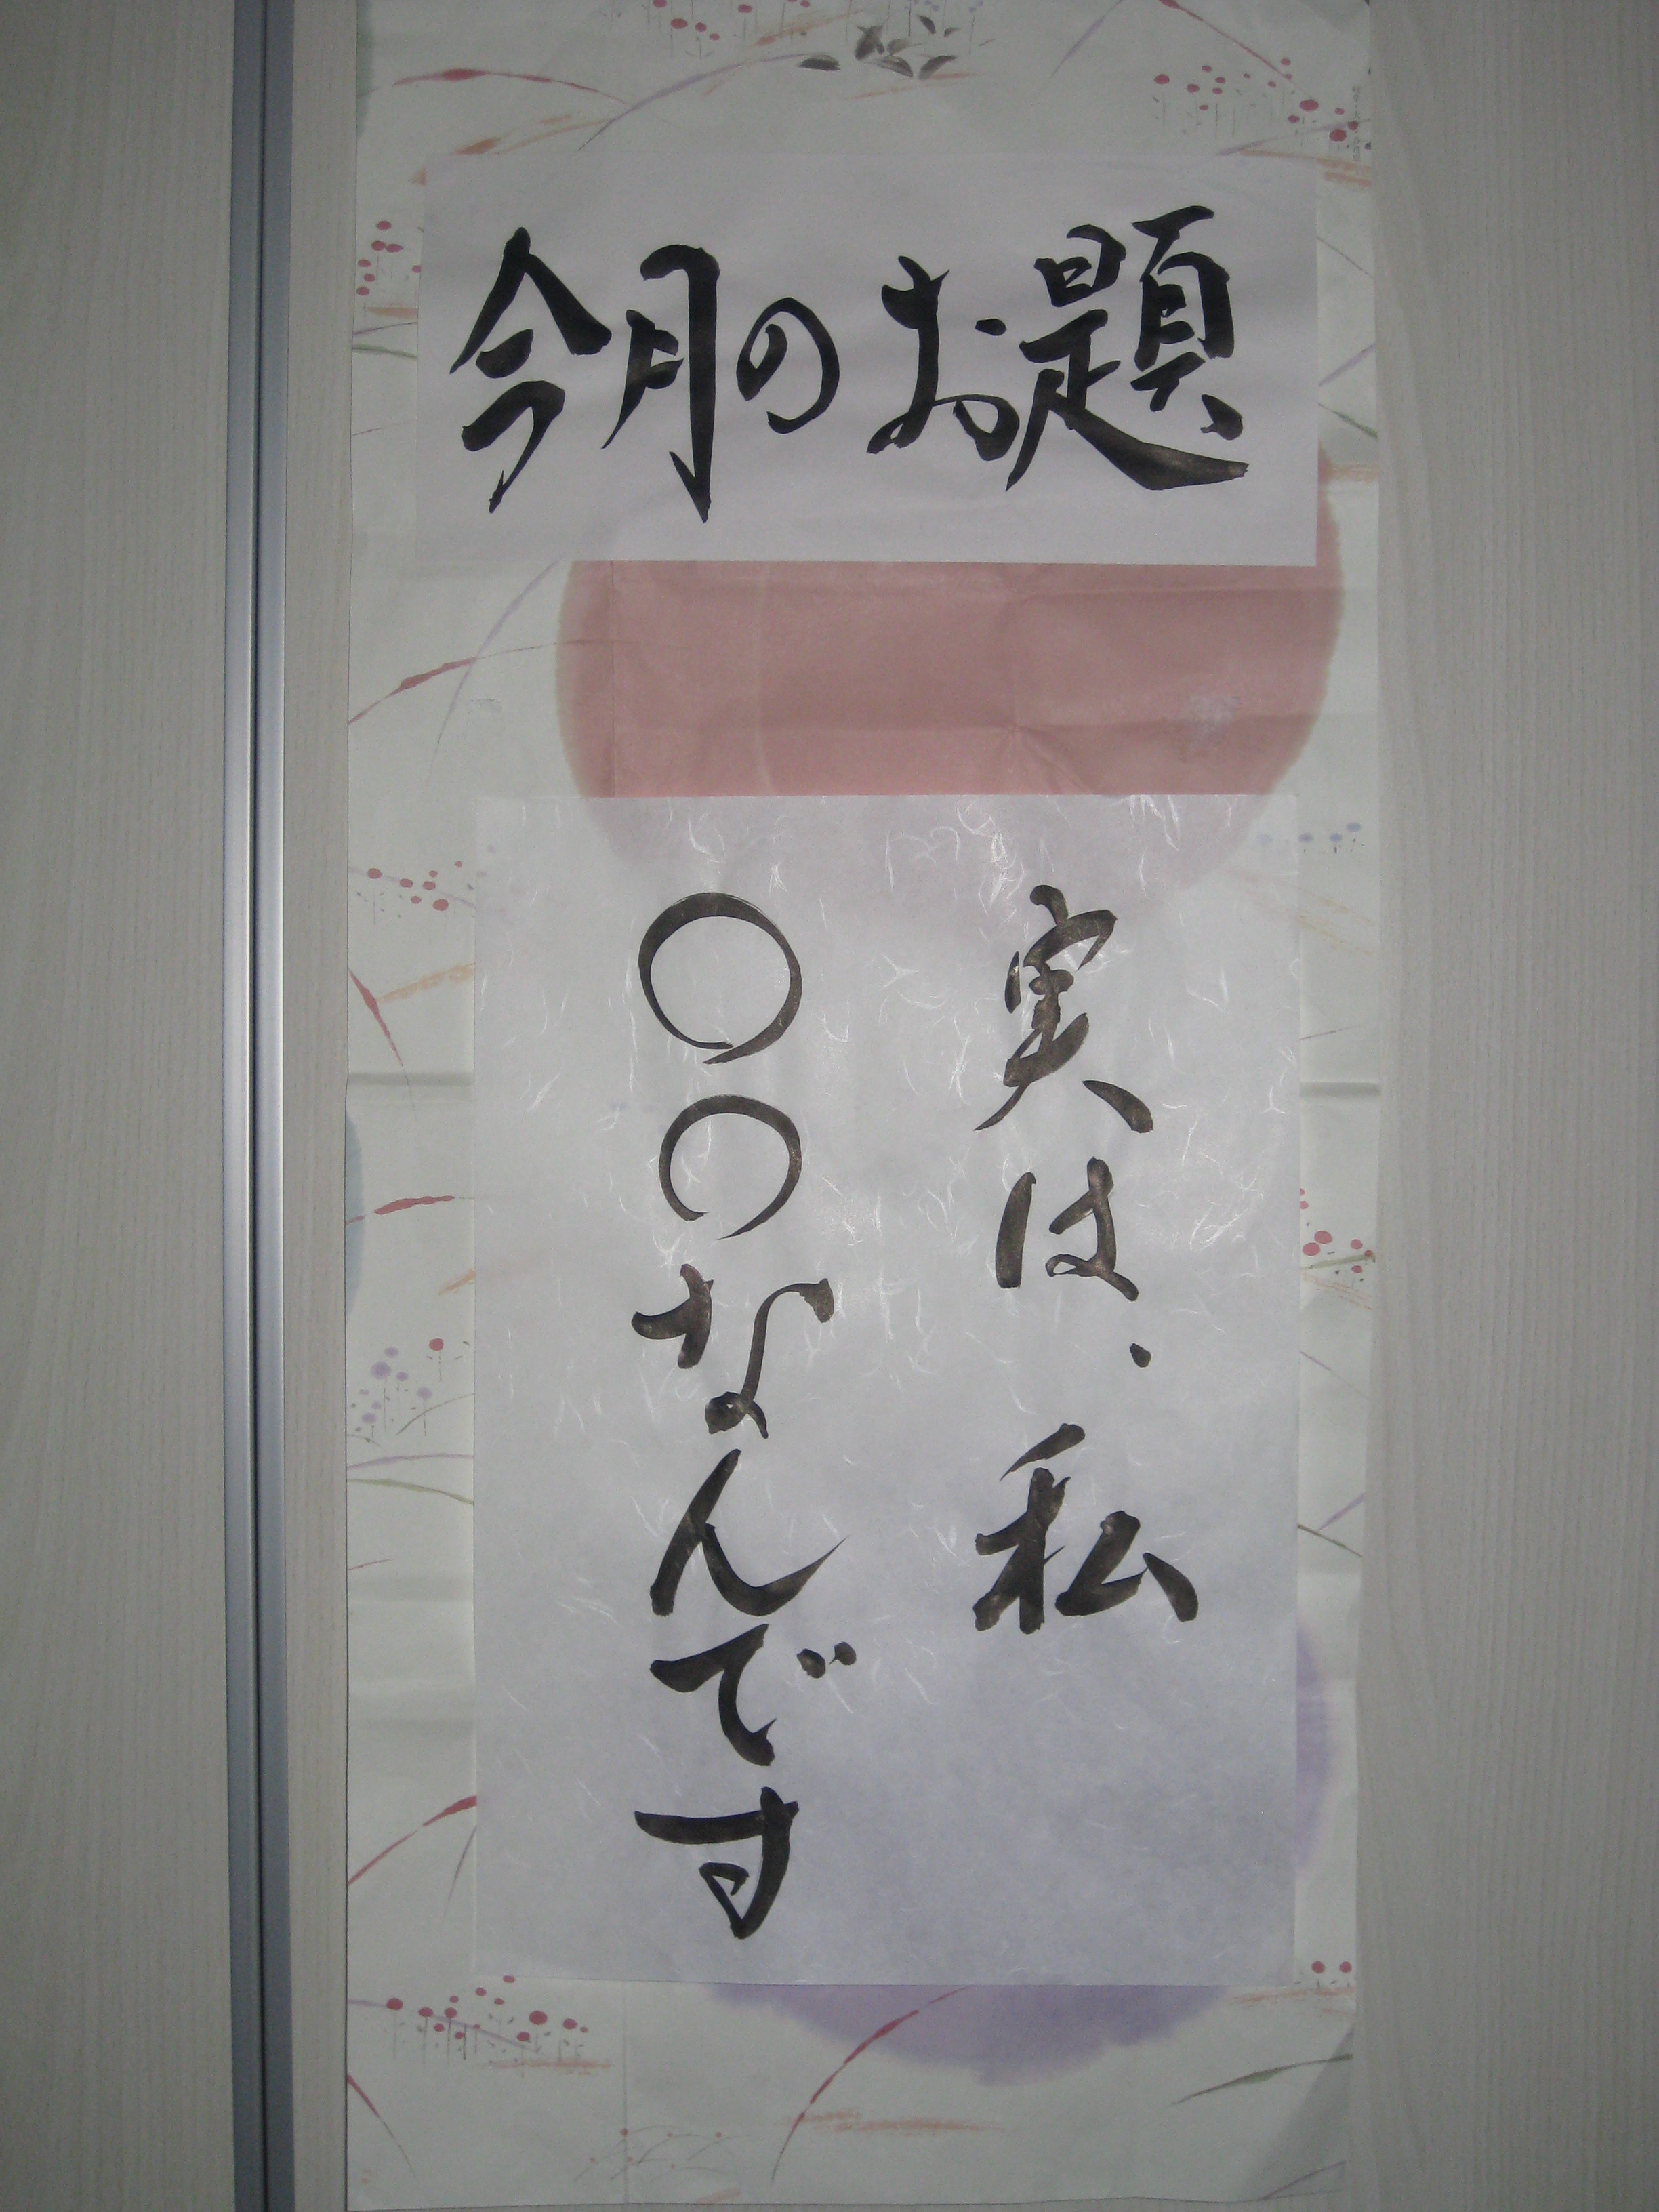 今月のお題
実は、私
〇〇なんです